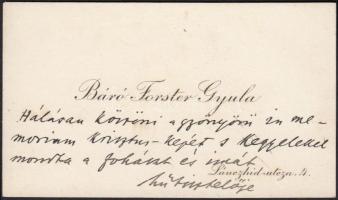 Báró Forster Gyula
Hálásan köszöni a gyönyörű in me-
moriam Krisztus-képét s kegyelettel
mondta a fohászt és imát
Lánczhíd-utcza 4.
hű tisztelője